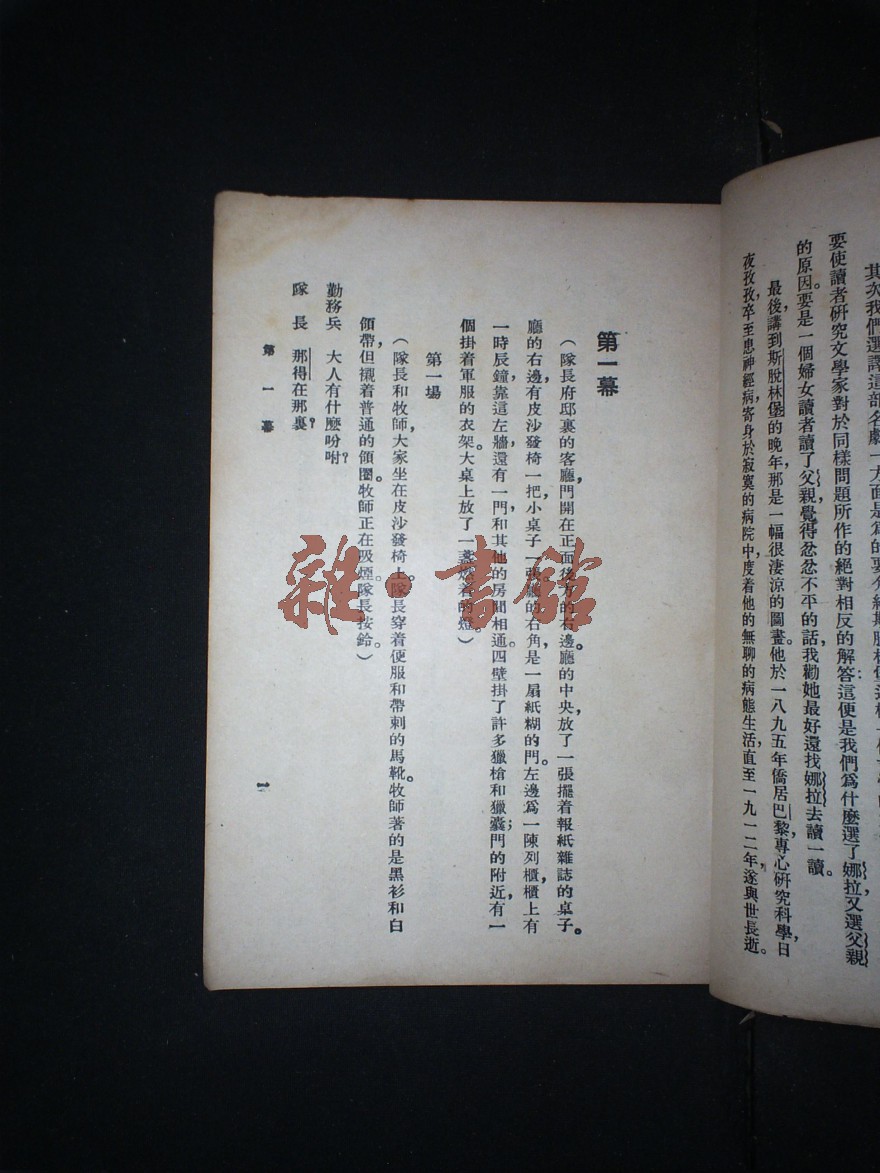 要使讀者研究文學家對於同樣問題所作的絕對相反的解答；這便是我們爲什麼選了娜拉，又選父親
的原因。要是一個婦女讀者讀了父親，覺得忿忿不平的話，我勸她最好還找娜拉去讀一讀。
最後講到斯脫林堡的晚年，那是一幅很淒涼的圖畫。他於一八九五年僑居巴黎，專心研究科學，日
夜孜孜，卒至患神經病，寄身於寂寞的病院中，度着他的無聊的病態生活，直至一九一二年，遂與世長逝。
第一幕
（隊長府邸裏的客廳，門開在正面後方的右邊。廳的中央放了一張擺着報紙雜誌的桌子。
廳的右邊，有皮沙發椅一把，小桌子一張。廳的右角，是一扇紙糊的門。左邊爲一陳列櫃，櫃上有
一時辰鐘。靠這左牆，還有一門和其他的房間相通。四壁掛了許多獵槍和獵囊；門的附近，有一
個掛着軍服的衣架。大桌上放了一盞燃着的燈。）
第一場
（隊長和牧師，大家坐在皮沙發椅上。隊長穿着便服和帶刺的馬靴。牧師著的是黑衫和白
領帶，但襯着普通的領圈。牧師正在吸煙，隊長按鈴。）
勤務兵　大人有什麼吩咐？
隊　長　那得在那裏？
第　一　幕
一
雜·書館